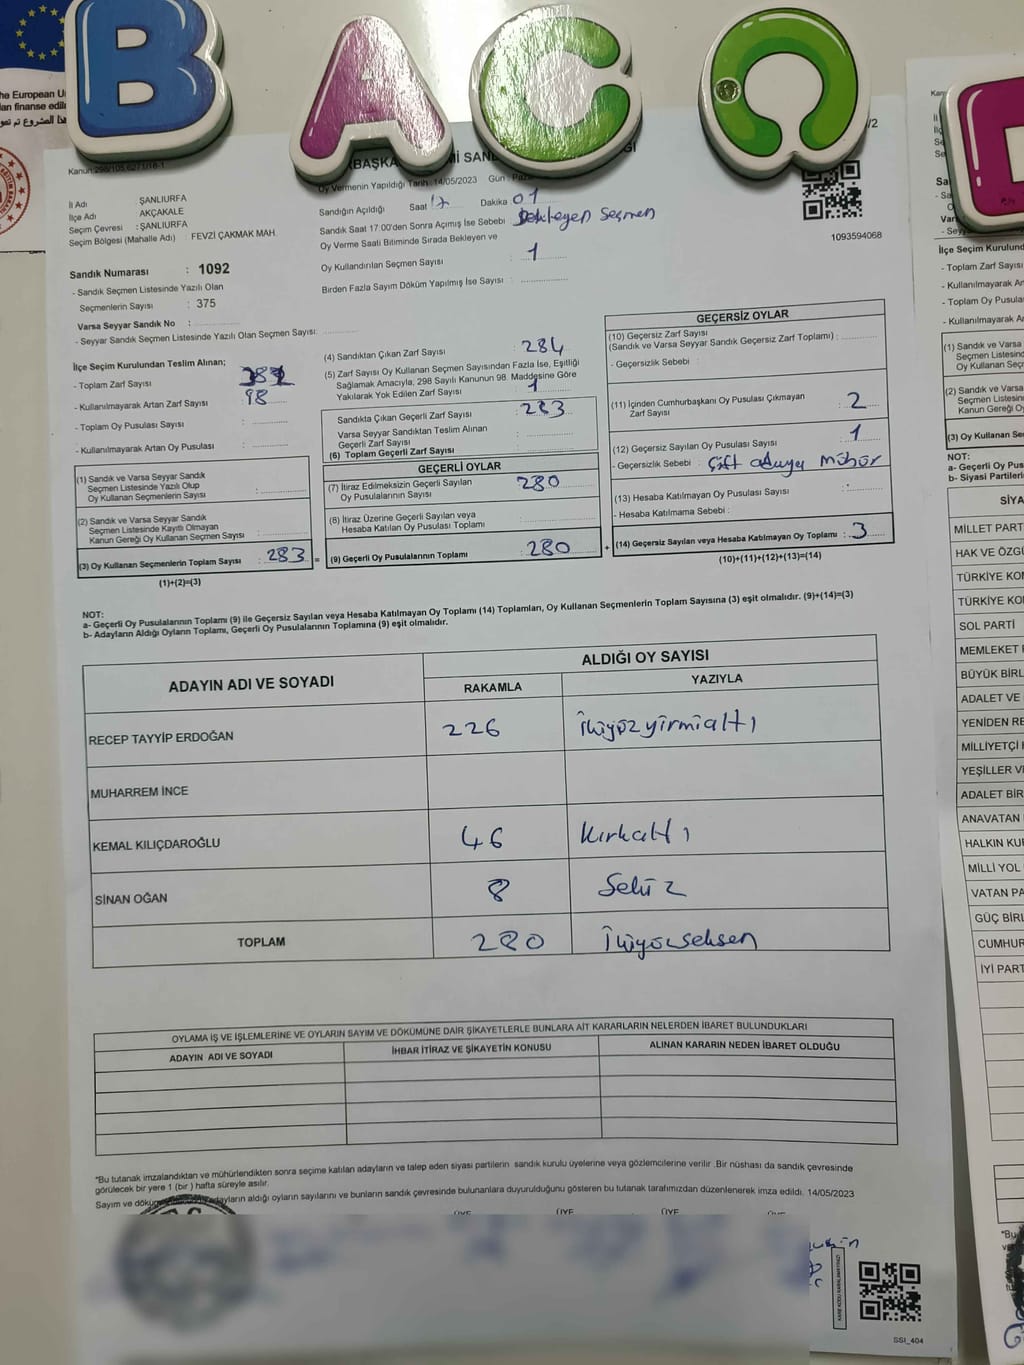 BACO
he European U
lan finanse edil
Kanun:298/105,6271/18-1
/2
İl Adı ŞANLIURFA
İlçe Adı AKÇAKALE
Seçim Çevresi : ŞANLIURFA
Seçim Bölgesi (Mahalle Adı) : FEVZİ ÇAKMAK MAH.
Oy Vermenin Yapıldığı Tarih :14/05/2023 Gün : Paz
Sandığın Açıldığı Saat 17 Dakika 01
Sandık Saat 17:00'den Sonra Açımış İse Sebebi Bekleyen Seçmen
Oy Verme Saati Bitiminde Sırada Bekleyen ve
Oy Kullandırılan Seçmen Sayısı : 1
Birden Fazla Sayım Döküm Yapılmış İse Sayısı :
1093594068
Sandık Numarası : 1092
- Sandık Seçmen Listesinde Yazılı Olan
Seçmenlerin Sayısı : 375
Varsa Seyyar Sandık No :
- Seyyar Sandık Seçmen Listesinde Yazılı Olan Seçmen Sayısı:
İlçe Seçim Kurulundan Teslim Alınan;
- Toplam Zarf Sayısı :
- Kullanılmayarak Artan Zarf Sayısı : 98
- Toplam Oy Pusulası Sayısı :
- Kullanılmayarak Artan Oy Pusulası :
(1) Sandık ve Varsa Seyyar Sandık
Seçmen Listesinde Yazılı Olup
Oy Kullanan Seçmenlerin Sayısı :
(2) Sandık ve Varsa Seyyar Sandık
Seçmen Listesinde Kayıtlı Olmayan
Kanun Gereği Oy Kullanan Seçmen Sayısı :
(3) Oy Kullanan Seçmenlerin Toplam Sayısı : 283 =
(1)+(2)=(3)
(4) Sandıktan Çıkan Zarf Sayısı : 284
(5) Zarf Sayısı Oy Kullanan Seçmen Sayısından Fazla İse, Eşitliği
Sağlamak Amacıyla, 298 Sayılı Kanunun 98. Maddesine Göre
Yakılarak Yok Edilen Zarf Sayısı : 1
Sandıkta Çıkan Geçerli Zarf Sayısı : 283
Varsa Seyyar Sandıktan Teslim Alınan
Geçerli Zarf Sayısı :
(6) Toplam Geçerli Zarf Sayısı :
GEÇERLİ OYLAR
(7) İtiraz Edilmeksizin Geçerli Sayılan
Oy Pusulalarının Sayısı : 280
(8) İtiraz Üzerine Geçerli Sayılan veya
Hesaba Katılan Oy Pusulası Toplamı :
(9) Geçerli Oy Pusulalarının Toplamı : 280 +
GEÇERSİZ OYLAR
(10) Geçersiz Zarf Sayısı
(Sandık ve Varsa Seyyar Sandık Geçersiz Zarf Toplamı) :
- Geçersizlik Sebebi :
(11) İçinden Cumhurbaşkanı Oy Pusulası Çıkmayan
Zarf Sayısı : 2
(12) Geçersiz Sayılan Oy Pusulası Sayısı : 1
- Geçersizlik Sebebi : Çift adaya mühür
(13) Hesaba Katılmayan Oy Pusulası Sayısı :
- Hesaba Katılmama Sebebi :
(14) Geçersiz Sayılan veya Hesaba Katılmayan Oy Toplamı : 3
(10)+(11)+(12)+(13)=(14)
NOT:
a- Geçerli Oy Pusulalarının Toplamı (9) ile Geçersiz Sayılan veya Hesaba Katılmayan Oy Toplamı (14) Toplamları, Oy Kullanan Seçmenlerin Toplam Sayısına (3) eşit olmalıdır. (9)+(14)=(3)
b- Adayların Aldığı Oyların Toplamı, Geçerli Oy Pusulalarının Toplamına (9) eşit olmalıdır.
ADAYIN ADI VE SOYADI ALDIĞI OY SAYISI
RAKAMLA YAZIYLA
RECEP TAYYİP ERDOĞAN 226 İkiyüzyirmialtı
MUHARREM İNCE
KEMAL KILIÇDAROĞLU 46 Kırkaltı
SİNAN OĞAN 8 Sekiz
TOPLAM 280 İkiyüzseksen
OYLAMA İŞ VE İŞLEMLERİNE VE OYLARIN SAYIM VE DÖKÜMÜNE DAİR ŞİKAYETLERLE BUNLARA AİT KARARLARIN NELERDEN İBARET BULUNDUKLARI
ADAYIN ADI VE SOYADI İHBAR İTİRAZ VE ŞİKAYETİN KONUSU ALINAN KARARIN NEDEN İBARET OLDUĞU
*Bu tutanak imzalandıktan ve mühürlendikten sonra seçime katılan adayların ve talep eden siyasi partilerin sandık kurulu üyelerine veya gözlemcilerine verilir .Bir nüshası da sandık çevresinde
görülecek bir yere 1 (bir ) hafta süreyle asılır.
Sayım ve döküm adayların aldığı oyların sayılarını ve bunların sandık çevresinde bulunanlara duyurulduğunu gösteren bu tutanak tarafımızdan düzenlenerek imza edildi. 14/05/2023
ÜYE ÜYE ÜYE
SSI_404
İlçe Seçim Kurulundan
- Toplam Zarf Sayısı
- Kullanılmayarak Ar
- Toplam Oy Pusulas
- Kullanılmayarak Ar
(1) Sandık ve Varsa
Seçmen Listesind
Oy Kullanan Seçm
(2) Sandık ve Varsa
Seçmen Listesind
Kanun Gereği Oy
(3) Oy Kullanan Se
NOT:
a- Geçerli Oy Pus
b- Siyasi Partileri
SİYA
MİLLET PART
HAK VE ÖZGÜ
TÜRKİYE KOM
TÜRKİYE KOM
SOL PARTİ
MEMLEKET
BÜYÜK BİRL
ADALET VE
YENİDEN RE
MİLLİYETÇİ
YEŞİLLER VE
ADALET BİR
ANAVATAN
HALKIN KU
MİLLİ YOL
VATAN PA
GÜÇ BİRL
CUMHUR
İYİ PART